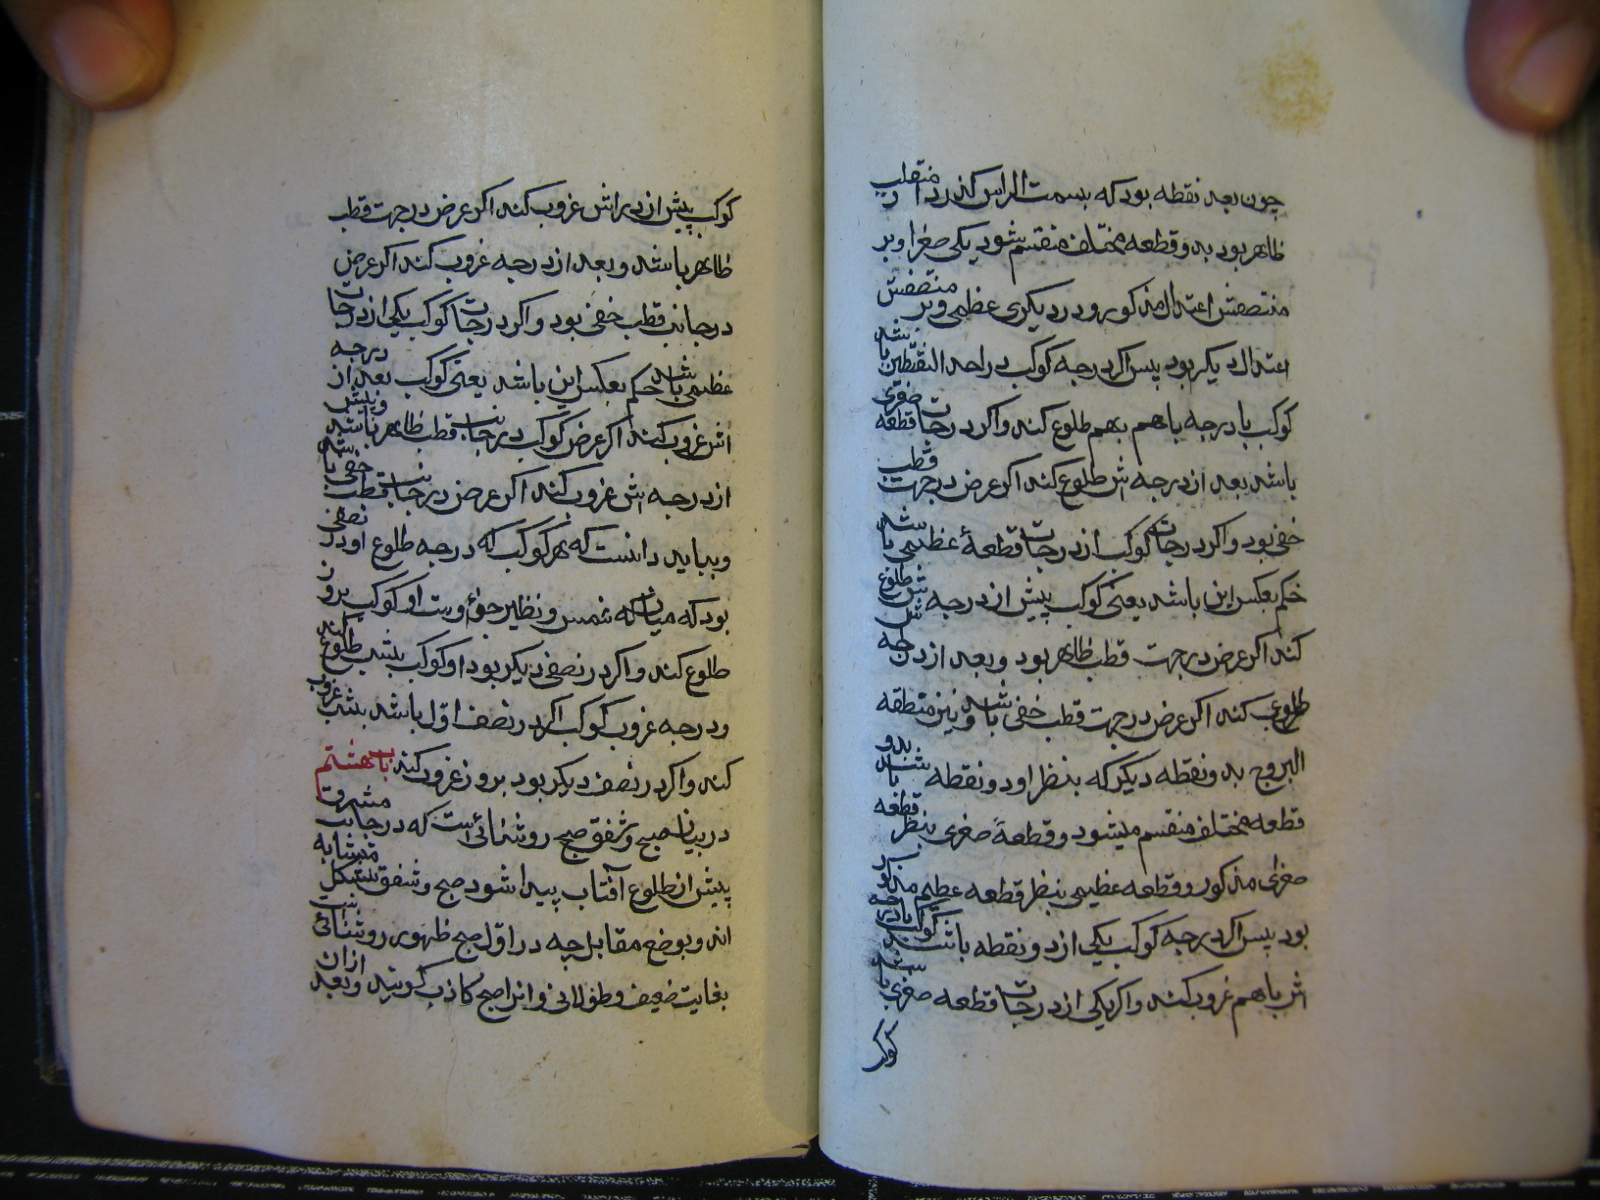 چون بعد نقطه بود که بسمت الراس گذرد از منقلب
ظاهر بود بدو قطعه مختلف منقسم شود یکی صغرا و بر
منتصفش اعتدال مذکور و در دیگری عظمی و بر منتصفش
اعتدال دیگر بود پس اگر درجه کوکب در احد النقطتین باشد
کوکب با درجه باهم بهم طلوع کند و اگر در درجات قطعه صغری
باشد بعد از درجه اش طلوع کند اگر عرض در جهت قطب
خفی بود و اگر درجات کوکب از درجات قطعهٔ عظیمی باشد
حکم بعکس این باشد یعنی کوکب پیش از درجه اش طلوع
کند اگر عرض در جهت قطب ظاهر بود و بعد از درجه اش
طلوع کند اگر عرض در جهت قطب خفی باشد و نیز منطقه
البروج بدو نقطه دیگر که بنظر او دو نقطه باشد بدو
قطعه مختلف منقسم میشود و قطعهٔ صغری بنظر قطعه
صغرای مذکور و قطعه عظیمی بنظر قطعه عظیم مذکور
بود پس اگر درجه کوکب یکی از دو نقطه باشد کوکب با درجه
اش باهم غروب کند و اگر یکی از درجات قطعه صغری باشد
کوکب
کوکب پیش از درجه اش غروب کند اگر عرض در جهت قطب
ظاهر باشد و بعد از درجه غروب کند اگر عرض
در جانب قطب خفی بود و اگر درجات کوکب یکی از درجات
عظیمی باشد حکم بعکس این باشد یعنی کوکب بعد از درجه
اش غروب کند اگر عرض کوکب در جانب قطب ظاهر باشد و پیش
از درجه اش غروب کند اگر عرض در جانب قطب خفی باشد
و بباید دانست که هر کوکب که درجه طلوع او در نصفی
بود که میان شمس و نظیر جزؤ اوست او کوکب بروز
طلوع کند و اگر در نصفی دیگر بود او کوکب بشب طلوع کند
و درجه غروب کوکب اگر در نصف اول باشد بشب غروب
کند و اگر در نصف دیگر بود بروز غروب کند باب هشتم
در بیان صبح و شفق صبح روشنائیست که در جانب مشرق
پیش از طلوع آفتاب پیدا شود صبح و شفق بشکل متشابه
اند و بوضع مقابل چه در اول صبح ظهور روشنائی
بغایت ضعیف و طولانی و انرا صبح کاذب گویند و بعد ازان